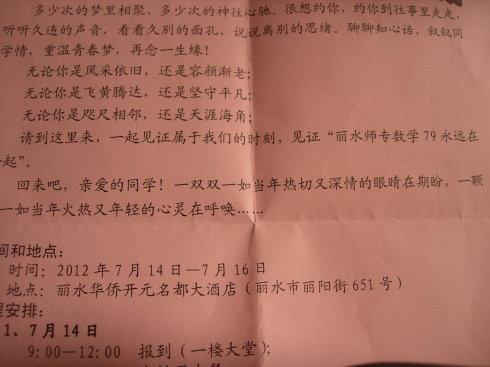 多少次的梦里相聚，多少次的神往心驰。很想约你，约你到往事里走走，
听听久违的声音，看看久别的面孔，说说离别的思绪。聊聊知心话，叙叙同
学情，重温青春梦，再念一生缘！
无论你是风采依旧，还是容颜渐老；
无论你是飞黄腾达，还是坚守平凡；
无论你是咫尺相邻，还是天涯海角；
请到这里来，一起见证属于我们的时刻，见证“丽水师专数学79永远在
起”。
回来吧，亲爱的同学！一双双一如当年热切又深情的眼睛在期盼，一颗
一如当年火热又年轻的心灵在呼唤……
间和地点：
时间：2012年7月14日—7月16日
地点：丽水华侨开元名都大酒店（丽水市丽阳街651号）
程安排：
1、7月14日
9:00—12:00 报到（一楼大堂）；